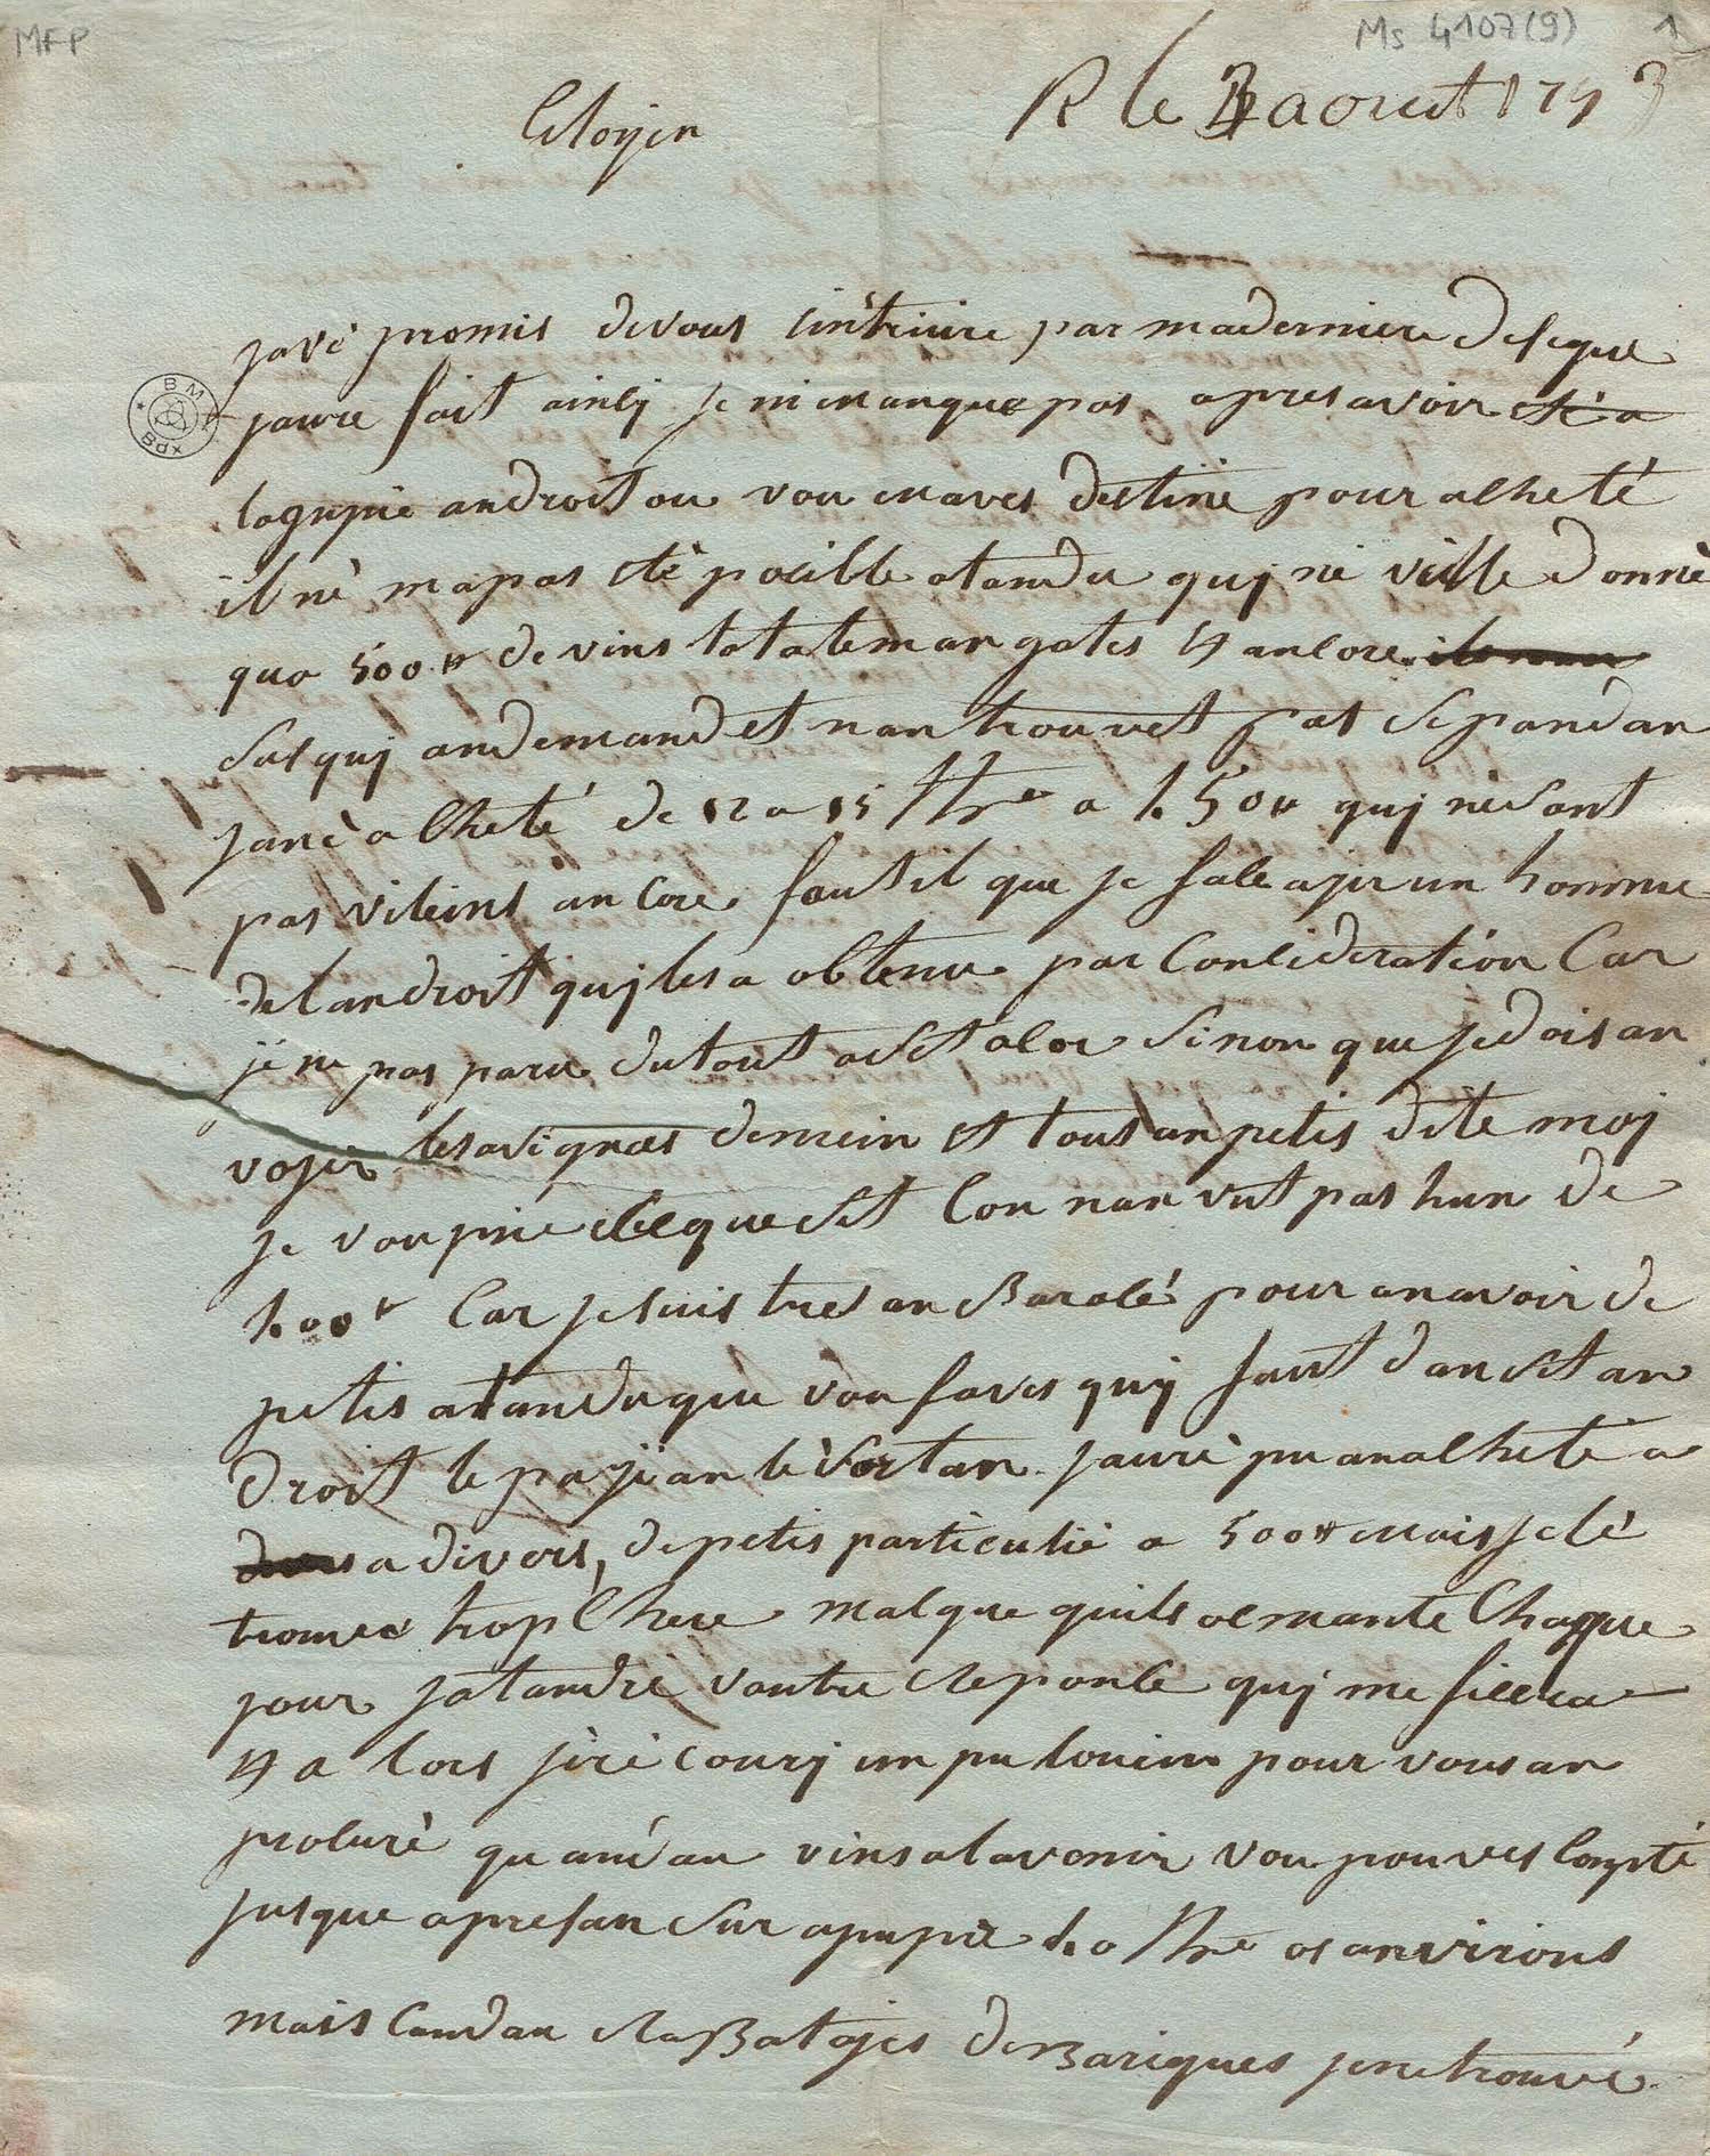 MFP
Ms 4107(9) 1
R le 3 aoust 1793
Citoyin
javè promis de vous intriuire par ma derniere desque
jaure fait ainsy je ni manque pas apres avoir été a
lagupie androit ou vou mavés destiné pour acheté
il nè ma pas été posible atandu quj ne velle donné
qua 500# de vins totaleman gates et ancore
sus quj an demandet nan trouvet pas sepandan
janè acheté de 12 a 15 a 450# quj ne sont
pas vileins ancore faut il que je fase ajir un homme
de landroit quj les a obtenu par Consideration Car
je ne pas paru du tout a set alor sinon que je dois an
voyer les avignes demein et tous an petis dite moj
je vou prie sce que set lon nan vut pas hun de
400# Car je suis tres anBarasé pour an avoir de
petis atandu que vou savès quj sont dan set an
droit le payian lè vortan jaurè pu an acheté a
a divers, de petis particulié a 500# mais je lè
trouvé trop Chere malgre quils ocmante Chaque
jour jatandré vautre reponse quj me fixera
et a lors jirè courj un pu louin pour vous an
procurè quand au vins a lavenir vou pouves Compté
jusque apresan sur apupré 40 os anvirons
mais Candau raBatajes de Bariques je ne trouvé
B M
Bdx